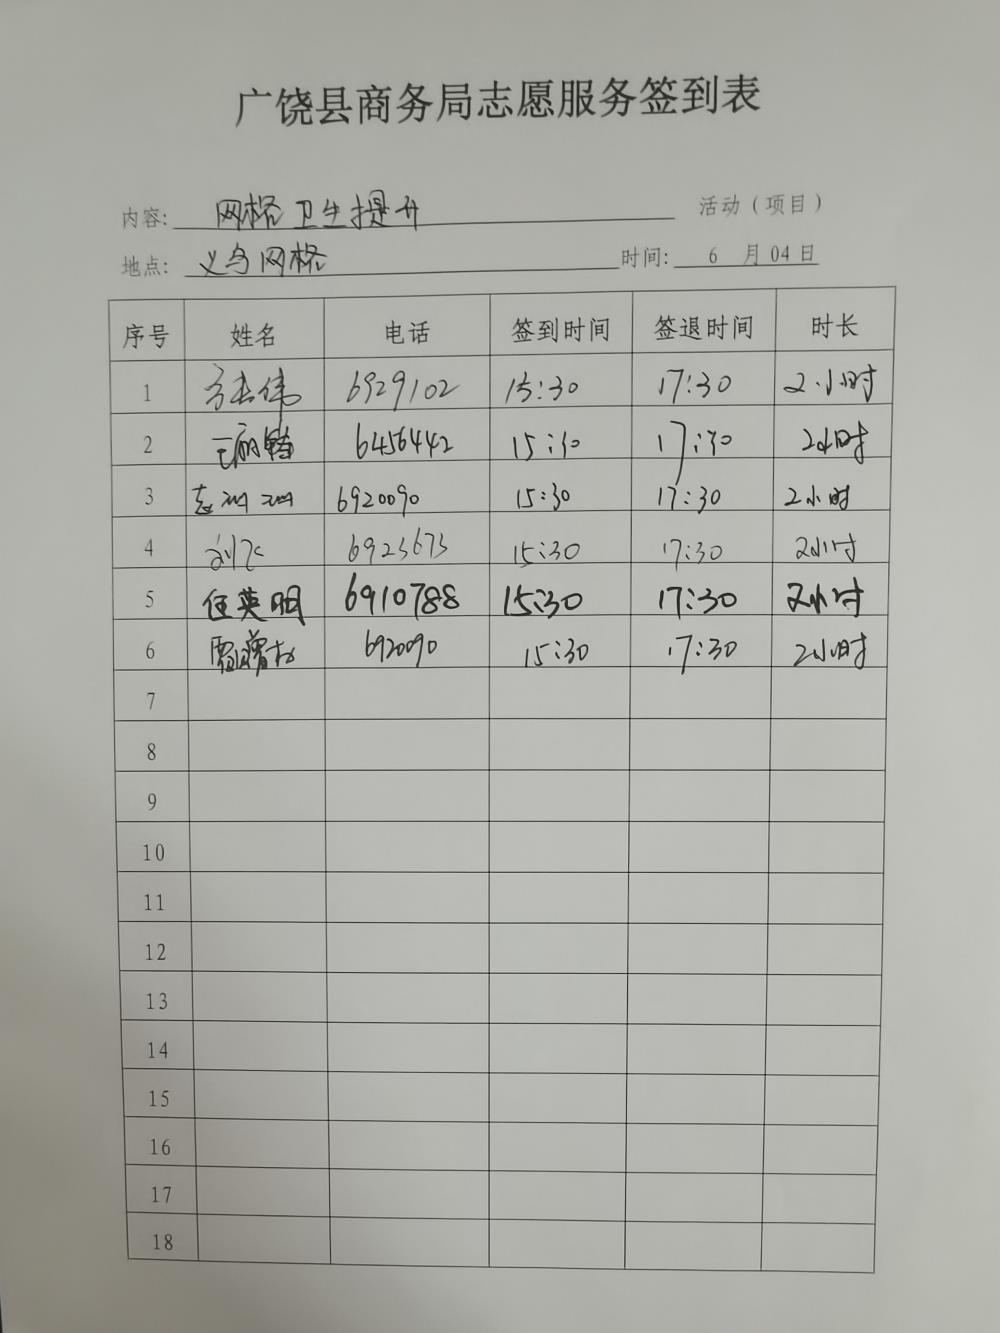 广饶县商务局志愿服务签到表
内容: 网格卫生提升 活动（项目）
地点: 义乌网格 时间: 6 月 04 日
序号 姓名 电话 签到时间 签退时间 时长
1 6929102 15:30 17:30 2小时
2 6456442 15:30 17:30 2小时
3 6920090 15:30 17:30 2小时
4 刘飞 6923673 15:30 17:30 2小时
5 任英明 6910788 15:30 17:30 2小时
6 692090 15:30 17:30 2小时
7
8
9
10
11
12
13
14
15
16
17
18